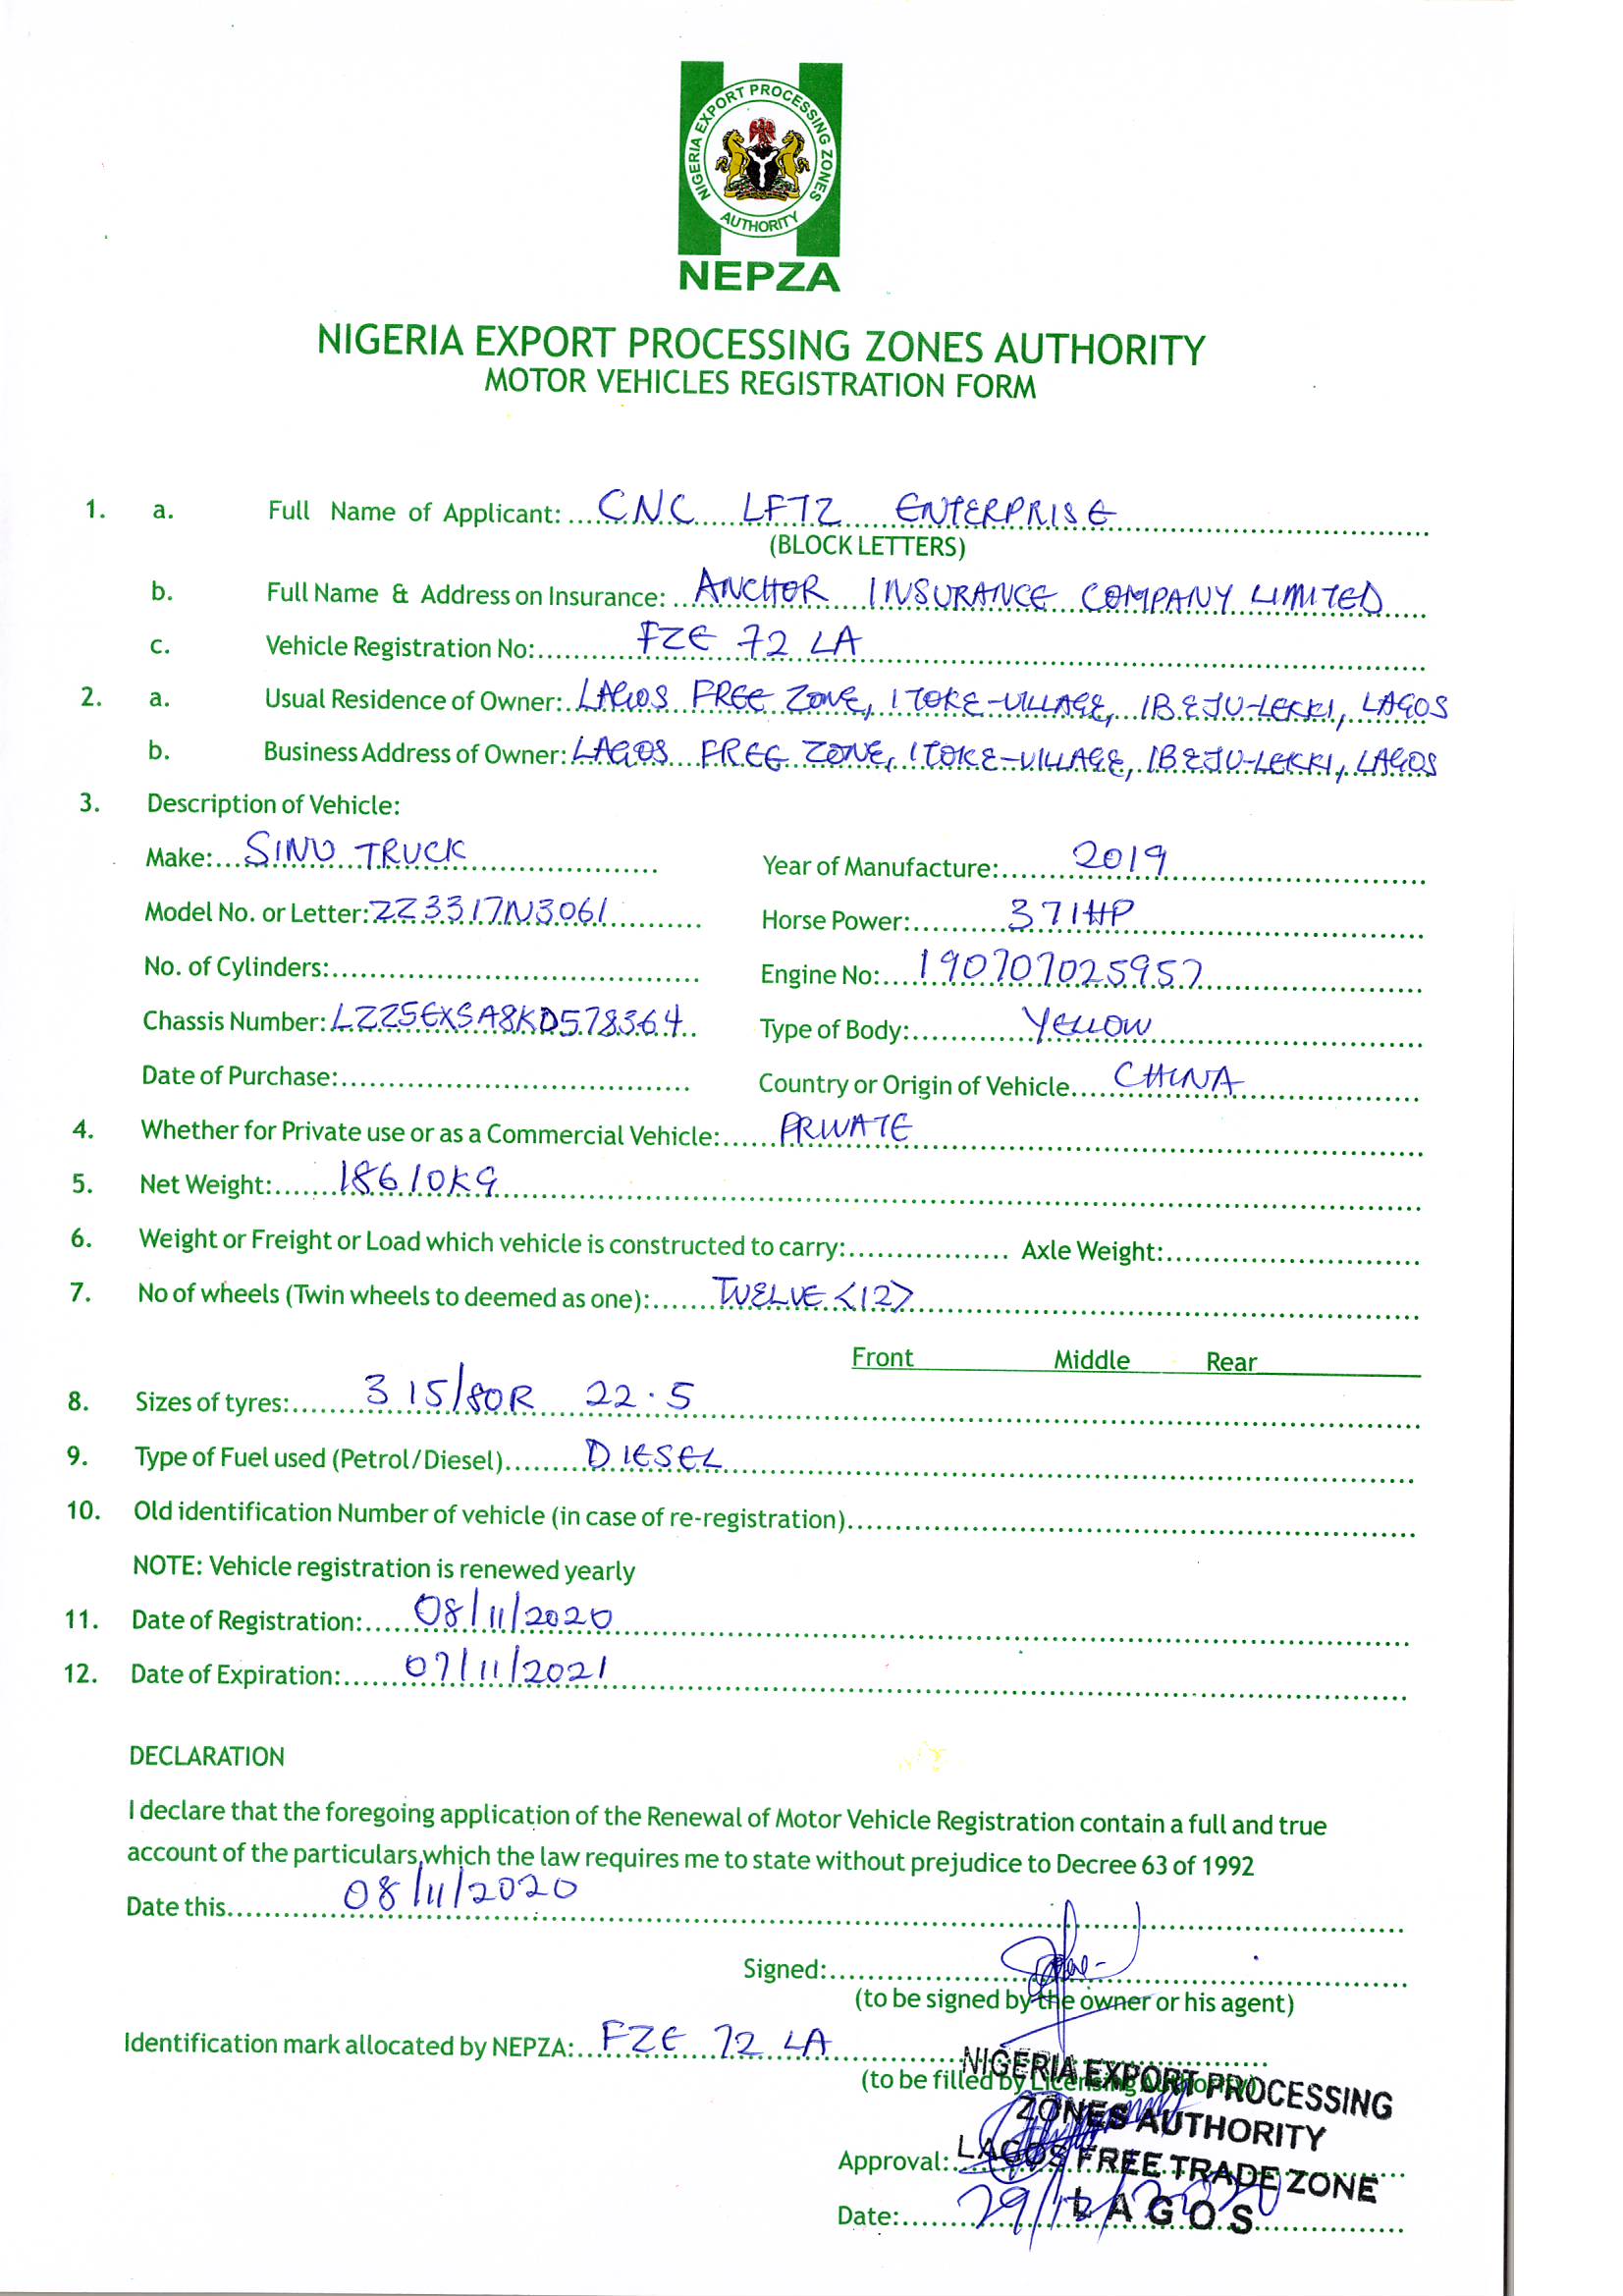 NIGERIA EXPORT PROCESSING ZONES
AUTHORITY
NEPZA
NIGERIA EXPORT PROCESSING ZONES AUTHORITY
MOTOR VEHICLES REGISTRATION FORM
1. a. Full Name of Applicant: CNC LFTZ ENTERPRISE
(BLOCK LETTERS)
b. Full Name & Address on Insurance: ANCHOR INSURANCE COMPANY LIMITED
c. Vehicle Registration No: FZE 72 LA
2. a. Usual Residence of Owner: LAGOS FREE ZONE, ITOKE-VILLAGE, IBEJU-LEKKI, LAGOS
b. Business Address of Owner: LAGOS FREE ZONE, ITOKE-VILLAGE, IBEJU-LEKKI, LAGOS
3. Description of Vehicle:
Make: SINO TRUCK Year of Manufacture: 2019
Model No. or Letter: ZZ3317N3061 Horse Power: 371HP
No. of Cylinders: Engine No: 190707025957
Chassis Number: LZZ5EXSA8KD578364 Type of Body: YELLOW
Date of Purchase: Country or Origin of Vehicle CHINA
4. Whether for Private use or as a Commercial Vehicle: PRIVATE
5. Net Weight: 18610KG
6. Weight or Freight or Load which vehicle is constructed to carry: Axle Weight:
7. No of wheels (Twin wheels to deemed as one): TWELVE <12>
Front Middle Rear
8. Sizes of tyres: 315/80R 22.5
9. Type of Fuel used (Petrol/Diesel) DIESEL
10. Old identification Number of vehicle (in case of re-registration)
NOTE: Vehicle registration is renewed yearly
11. Date of Registration: 08/11/2020
12. Date of Expiration: 07/11/2021
DECLARATION
I declare that the foregoing application of the Renewal of Motor Vehicle Registration contain a full and true
account of the particulars,which the law requires me to state without prejudice to Decree 63 of 1992
Date this 08/11/2020
Signed:
(to be signed by the owner or his agent)
Identification mark allocated by NEPZA: FZE 72 LA
(to be filled by Licensing Authority)
NIGERIA EXPORT PROCESSING
ZONES AUTHORITY
LAGOS FREE TRADE ZONE
LAGOS
Approval:
Date: 29/12/2020